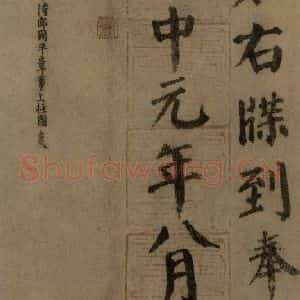 右牒到奉
中元年八月
侍郎同平章事上柱國
Shufawang.CN